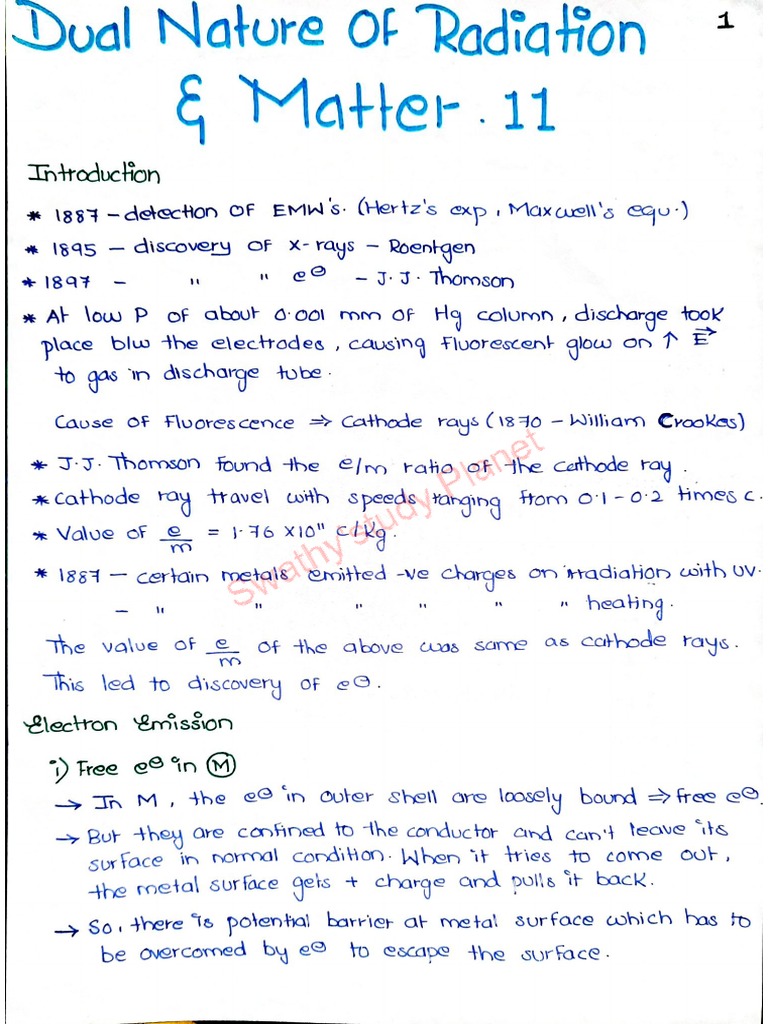 1
Dual Nature Of Radiation
& Matter. 11
Introduction
* 1887 – detection of EMW's. (Hertz's exp, Maxwell's equ.)
* 1895 – discovery of x-rays – Roentgen
* 1897 – " " e⊖ – J.J. Thomson
* At low P of about 0.001 mm of Hg column, discharge took
place b/w the electrodes, causing fluorescent glow on ↑ E⃗
to gas in discharge tube.
Cause of Fluorescence ⇒ Cathode rays (1870 – William Crookes)
* J.J. Thomson found the e/m ratio of the cathode ray.
* Cathode ray travel with speeds ranging from 0.1 – 0.2 times c.
* Value of e/m = 1.76 × 10¹¹ c/kg.
* 1887 – certain metals emitted -ve charges on irradiation with UV.
– " " " " " " heating.
The value of e/m of the above was same as cathode rays.
This led to discovery of e⊖.
Electron Emission
i) Free e⊖ in Ⓜ
→ In M, the e⊖ in outer shell are loosely bound ⇒ free e⊖.
→ But they are confined to the conductor and can't leave its
surface in normal condition. When it tries to come out,
the metal surface gets + charge and pulls it back.
→ So, there is potential barrier at metal surface which has to
be overcomed by e⊖ to escape the surface.
Swathy Study Planet